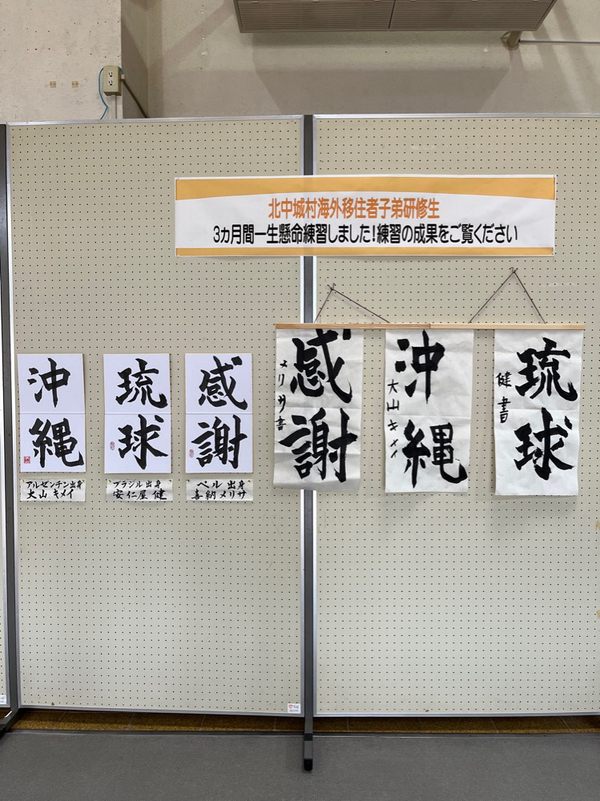 北中城村海外移住者子弟研修生
3ヵ月間一生懸命練習しました!練習の成果をご覧ください
沖縄
アルゼンチン出身
大山 キメイ
琉球
ブラジル出身
安仁屋 健
感謝
ペルー出身
喜納メリサ
感謝
メリサ書
沖縄
大山キメイ
琉球
健書